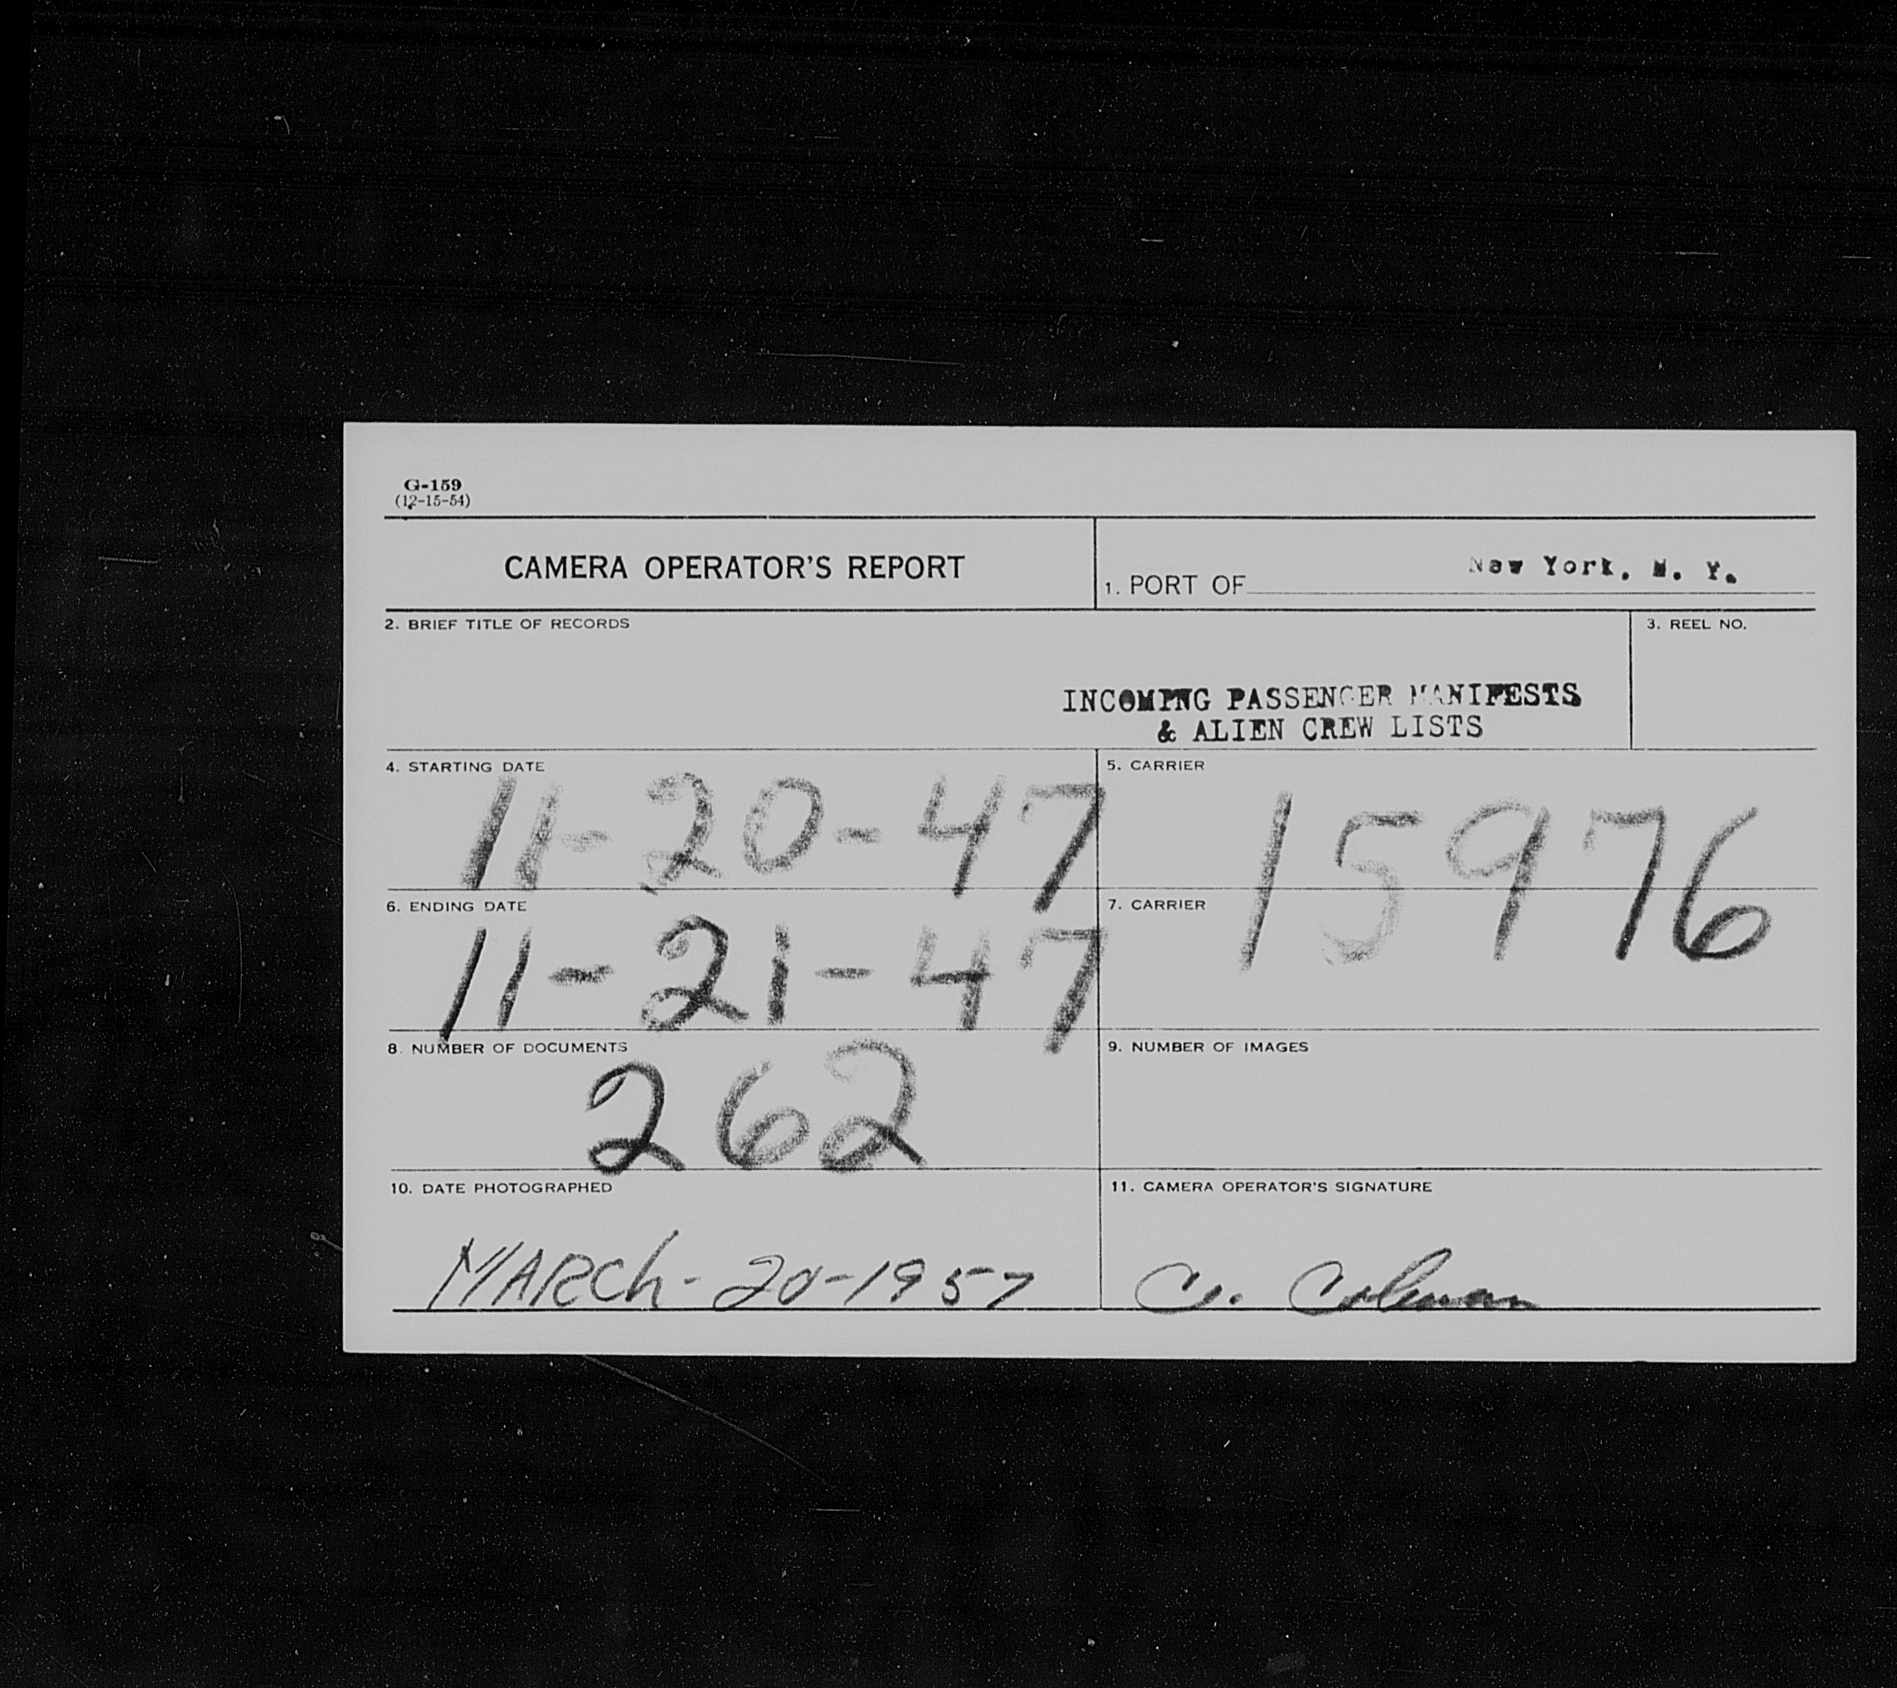 G-159
(12-15-54)
CAMERA OPERATOR'S REPORT
1. PORT OF New York, N. Y.
2. BRIEF TITLE OF RECORDS
3. REEL NO.
INCOMING PASSENGER MANIFESTS
& ALIEN CREW LISTS
4. STARTING DATE
11-20-47
5. CARRIER
15976
6. ENDING DATE
11-21-47
7. CARRIER
8. NUMBER OF DOCUMENTS
262
9. NUMBER OF IMAGES
10. DATE PHOTOGRAPHED
MARCh-20-1957
11. CAMERA OPERATOR'S SIGNATURE
C. Colman